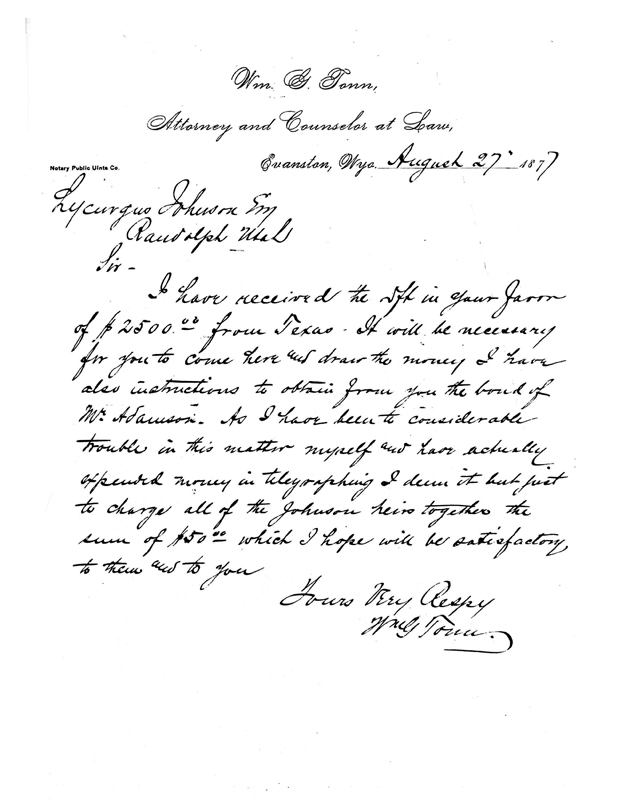 Wm. G. Tonn,
Attorney and Counselor at Law,
Notary Public Uinta Co.
Evanston, Wyo. August 27" 1877
Lycurgus Johnson Esq
Randolph Utah
Sir -
I have received the dft in your favor
of $2500.00 from Texas - It will be necessary
for you to come here and draw the money I have
also instructions to obtain from you the bond of
Mr. Adamson. As I have been to considerable
trouble in this matter myself and have actually
expended money in telegraphing I deem it but just
to charge all of the Johnson heirs together the
sum of $50.00 which I hope will be satisfactory
to them and to you
Yours Very Respy
Wm G Tonn.